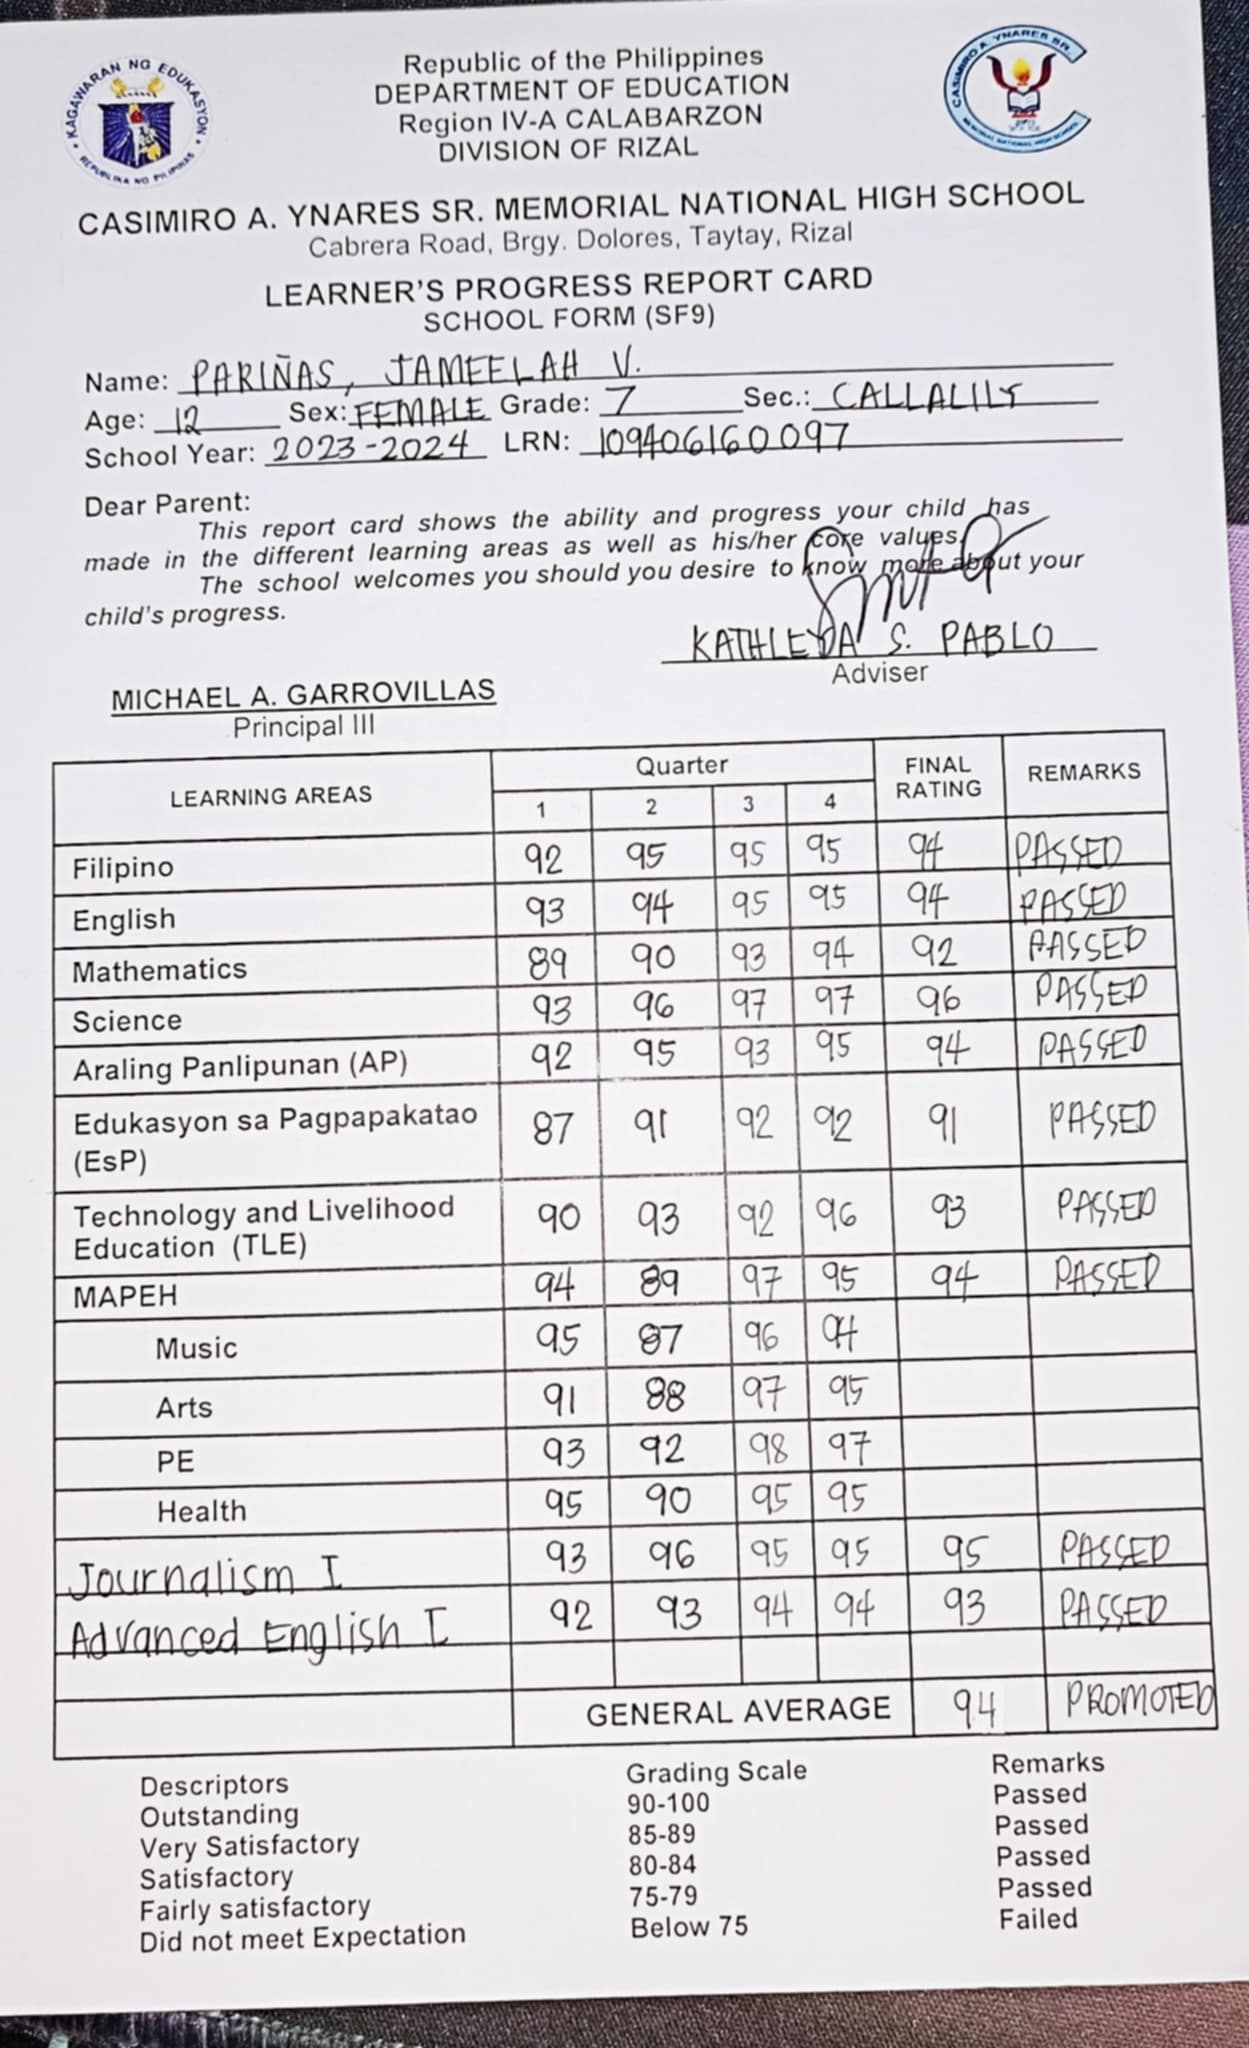 KAGAWARAN NG EDUKASYON
REPUBLIKA NG PILIPINAS
CASIMIRO A. YNARES SR.
MEMORIAL NATIONAL HIGH SCHOOL
Republic of the Philippines
DEPARTMENT OF EDUCATION
Region IV-A CALABARZON
DIVISION OF RIZAL
CASIMIRO A. YNARES SR. MEMORIAL NATIONAL HIGH SCHOOL
Cabrera Road, Brgy. Dolores, Taytay, Rizal
LEARNER'S PROGRESS REPORT CARD
SCHOOL FORM (SF9)
Name: PARIÑAS, JAMEELAH V.
Age: 12 Sex: FEMALE Grade: 7 Sec.: CALLALILY
School Year: 2023-2024 LRN: 109406160097
Dear Parent:
This report card shows the ability and progress your child has
made in the different learning areas as well as his/her core values.
The school welcomes you should you desire to know more about your
child's progress.
KATHLEYDA S. PABLO
Adviser
MICHAEL A. GARROVILLAS
Principal III
LEARNING AREAS Quarter FINAL RATING REMARKS
1 2 3 4
Filipino 92 95 95 95 94 PASSED
English 93 94 95 95 94 PASSED
Mathematics 89 90 93 94 92 PASSED
Science 93 96 97 97 96 PASSED
Araling Panlipunan (AP) 92 95 93 95 94 PASSED
Edukasyon sa Pagpapakatao (EsP) 87 91 92 92 91 PASSED
Technology and Livelihood Education (TLE) 90 93 92 96 93 PASSED
MAPEH 94 89 97 95 94 PASSED
Music 95 87 96 94
Arts 91 88 97 95
PE 93 92 98 97
Health 95 90 95 95
Journalism I 93 96 95 95 95 PASSED
Advanced English I 92 93 94 94 93 PASSED
GENERAL AVERAGE 94 PROMOTED
Descriptors Grading Scale Remarks
Outstanding 90-100 Passed
Very Satisfactory 85-89 Passed
Satisfactory 80-84 Passed
Fairly satisfactory 75-79 Passed
Did not meet Expectation Below 75 Failed